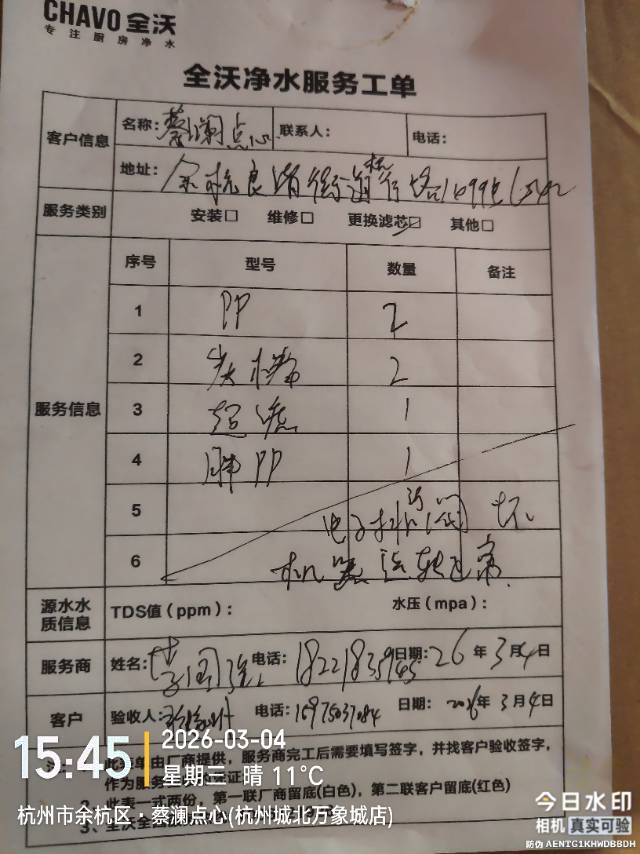 CHAVO 全沃
专注厨房净水
全沃净水服务工单
客户信息
名称：蔡澜点心
联系人：
电话：
地址：余杭良渚街道杭行路1499号
服务类别
安装□ 维修□ 更换滤芯☑ 其他□
服务信息
序号 型号 数量 备注
1 PP 2
2 炭棒 2
3 超滤 1
4 PP 1
5
6
电子排污阀 坏
机器运转正常
源水水质信息
TDS值（ppm）：
水压（mpa）：
服务商
姓名：李国强 电话： 日期：26年3月4日
客户
验收人： 电话： 日期：2026年3月4日
此工单由厂商提供，服务商完工后需要填写签字，并找客户验收签字，
作为服务
2、此表一式两份，第一联厂商留底(白色)，第二联客户留底(红色)
3、全沃全国
15:45
2026-03-04
星期三 晴 11°C
杭州市余杭区·蔡澜点心(杭州城北万象城店)
今日水印
相机 真实可验
防伪 AENTG1KHWDBBDH